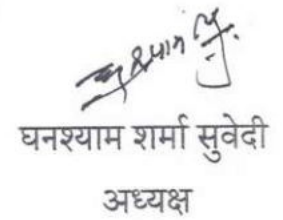 घनश्याम शर्मा सुवेदी
अध्यक्ष